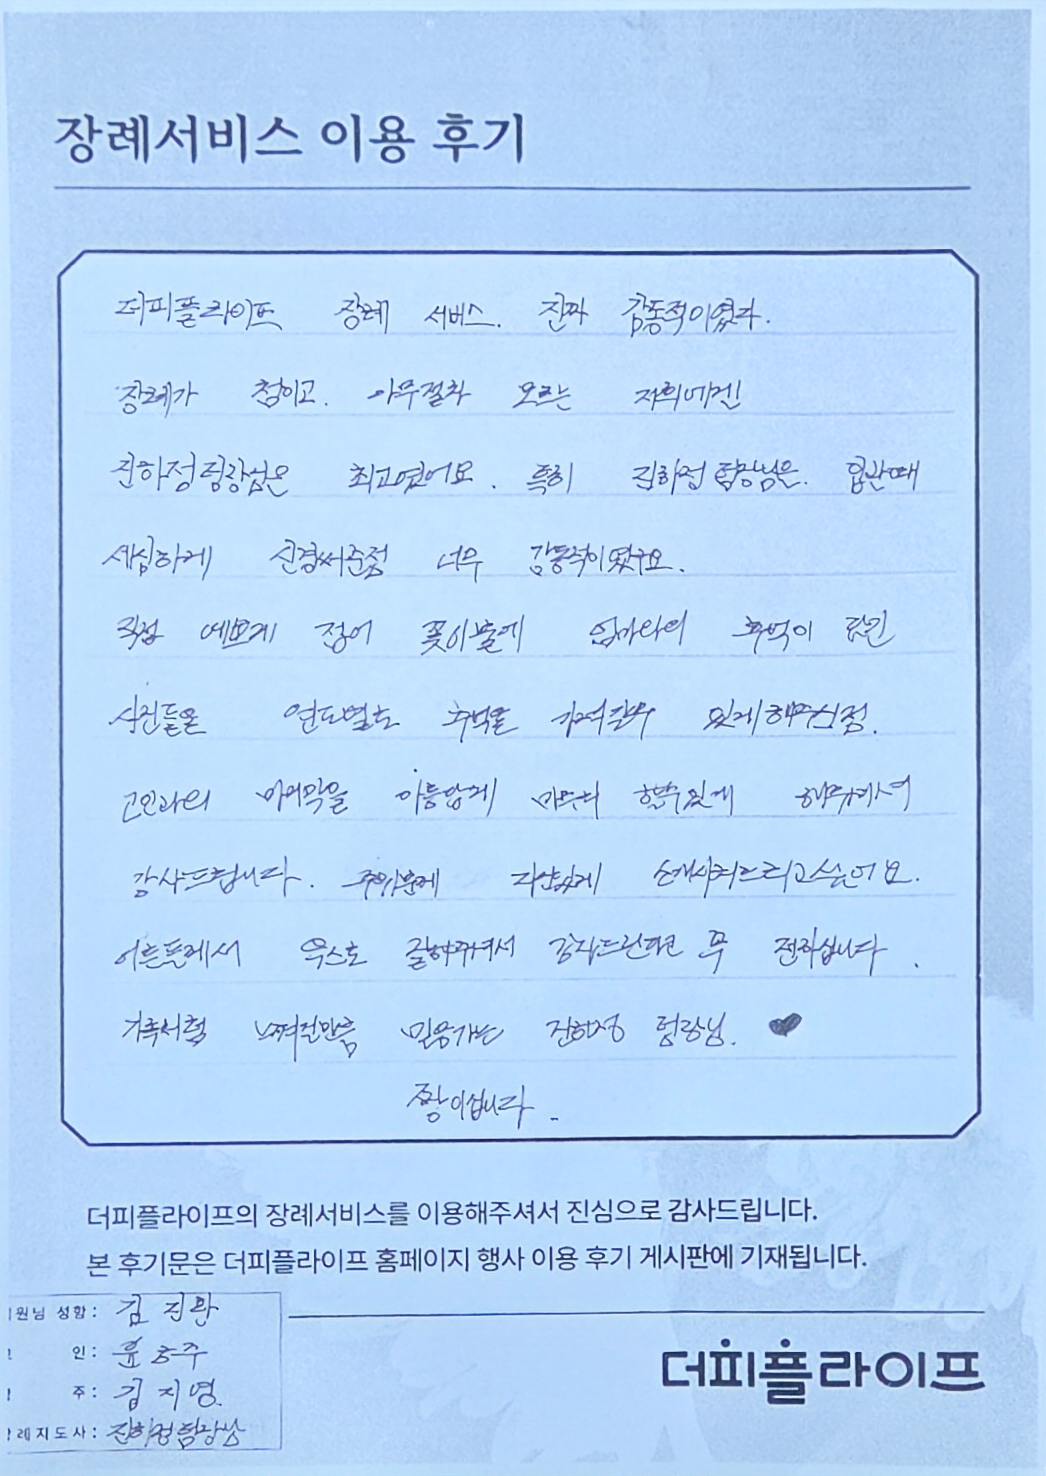 장례서비스 이용 후기
더피플라이프 장례 서비스. 진짜 감동적이였다.
장례가 첨이고. 아무절차 모르는 저희에겐
진하정팀장님은 최고였어요. 특히 진하정팀장님은. 입관때
세심하게 신경써준점 너무 감동적이였구요.
직접 예쁘게 접어 꽃이불에 엄마와의 추억이 담긴
사진들을 연도별로 추억을 가져갈수 있게해주신점.
고인과의 마지막을 아름답게 마무리 할수있게 해주셔서
감사드립니다. 주위분께 자신있게 소개시켜드리고싶은어요.
어른들께서 잘해주셔서 감사드린다고 꼭 전하십니다.
가족처럼 느껴질만큼 믿음가는 진하정 팀장님. ♥
짱이십니다.
더피플라이프의 장례서비스를 이용해주셔서 진심으로 감사드립니다.
본 후기문은 더피플라이프 홈페이지 행사 이용 후기 게시판에 기재됩니다.
원님 성함: 김진환
인: 윤
주: 김지영
례지도사: 진하정팀장님
더피플라이프